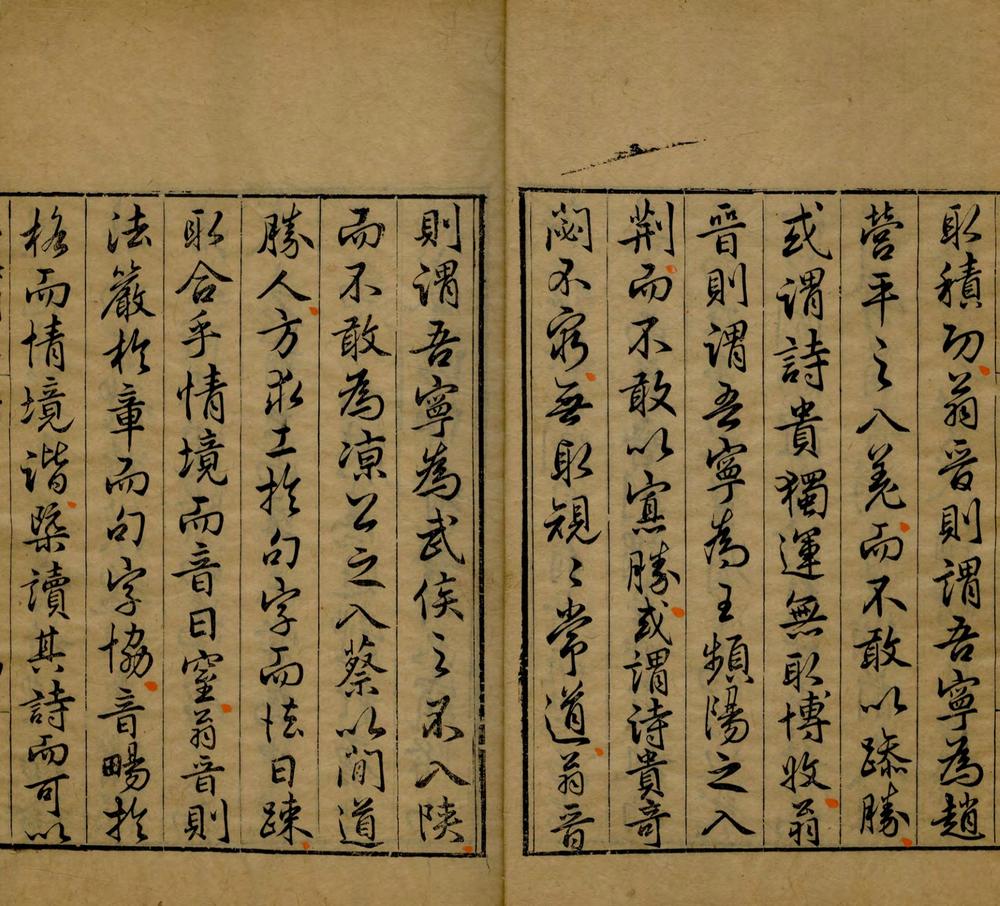 取積功翁晉則謂吾寧為趙
營平之入羌而不敢以躁勝
或謂詩貴獨運無取博收翁
晉則謂吾寧為王頻陽之入
荆而不敢以寡勝或謂詩貴奇
閟不窮無取規〻常道翁晉
則謂吾寧為武侯之不入陝
而不敢為涼公之入蔡以間道
勝人方求工於句字而法日疎
取合乎情境而音日窒翁晉則
法嚴於章而句字協音暢於
格而情境諧槩讀其詩而可以